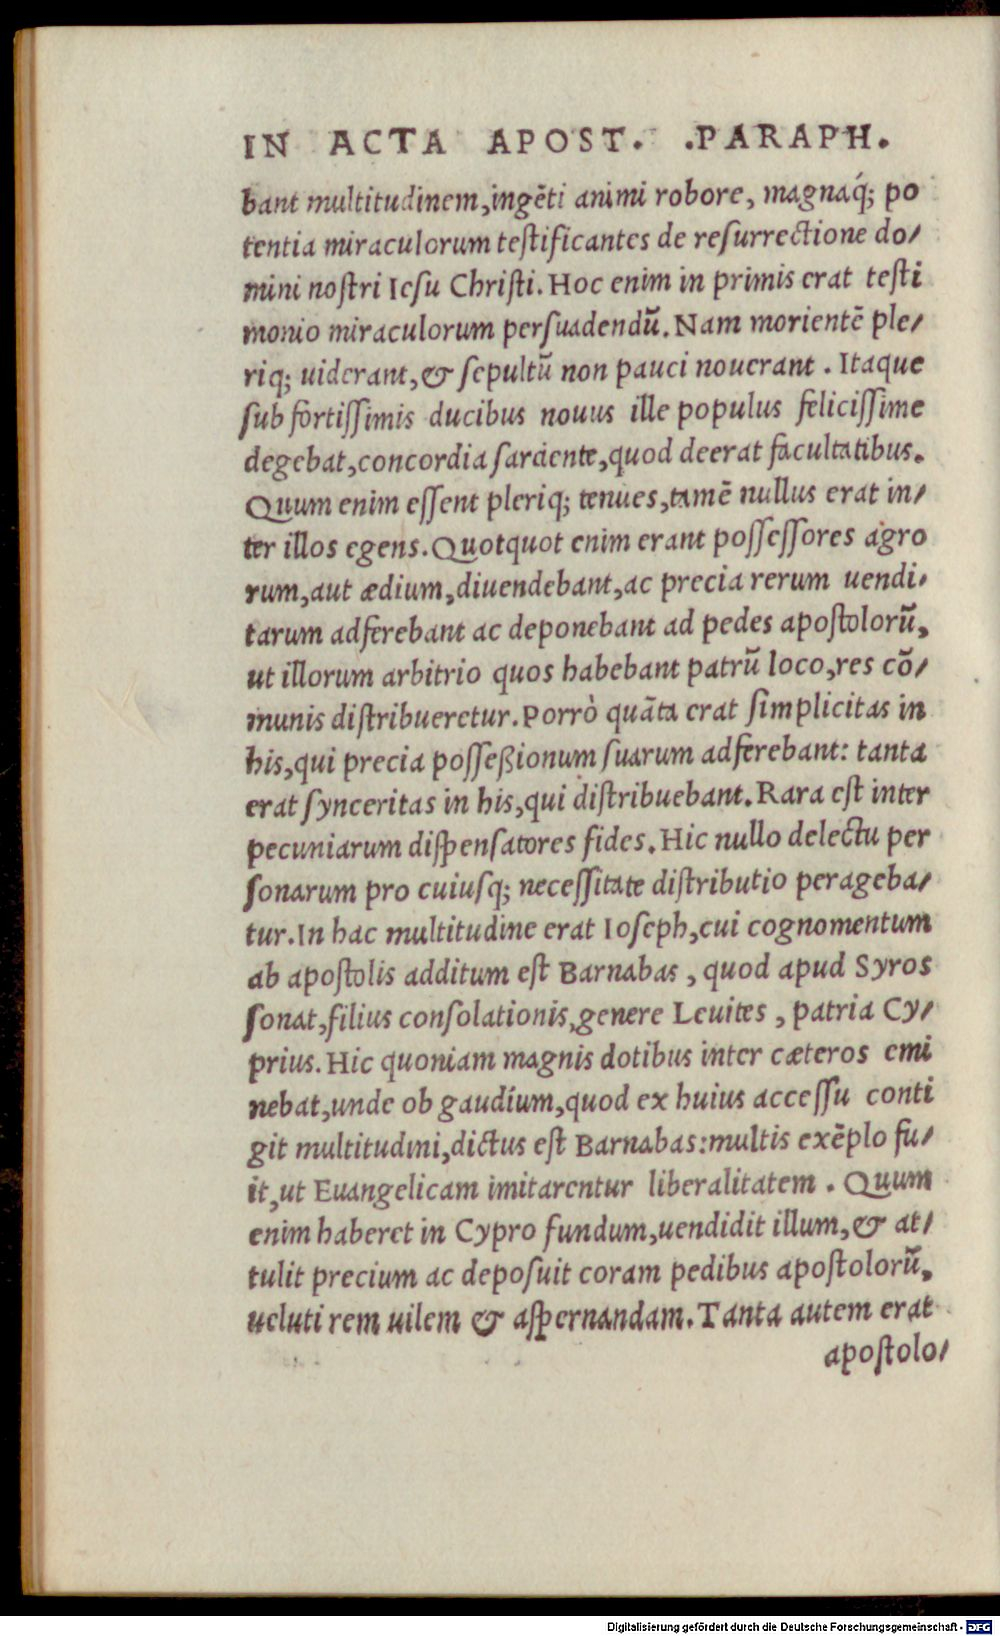 IN ACTA APOST. .PARAPH.
bant multitudinem,ingēti animi robore, magnaq́; po
tentia miraculorum teſtificantes de reſurrectione do/
mini noſtri Ieſu Chriſti. Hoc enim in primis erat teſti
monio miraculorum perſuadendū. Nam morientē ple/
riq; uiderant,& ſepultū non pauci nouerant . Itaque
ſub fortiſſimis ducibus nouus ille populus feliciſſime
degebat,concordia ſarciente,quod deerat facultatibus.
Quum enim eſſent pleriq; tenues,tamē nullus erat in/
ter illos egens. Quotquot enim erant poſſeſſores agro
rum,aut ædium,diuendebant,ac precia rerum uendi/
tarum adferebant ac deponebant ad pedes apoſtolorū,
ut illorum arbitrio quos habebant patrū loco,res cō/
munis diſtribueretur. Porrò quāta erat ſimplicitas in
his,qui precia poſſeßionum ſuarum adferebant: tanta
erat ſynceritas in his,qui diſtribuebant. Rara eſt inter
pecuniarum diſpenſatores fides. Hic nullo delectu per
ſonarum pro cuiuſq; neceſſitate diſtributio perageba/
tur. In hac multitudine erat Ioſeph,cui cognomentum
ab apoſtolis additum eſt Barnabas , quod apud Syros
ſonat,filius conſolationis,genere Leuites , patria Cy/
prius. Hic quoniam magnis dotibus inter cæteros emi
nebat,unde ob gaudium,quod ex huius acceſſu conti
git multitudini,dictus eſt Barnabas:multis exēplo fu/
it,ut Euangelicam imitarentur liberalitatem . Quum
enim haberet in Cypro fundum,uendidit illum,& at/
tulit precium ac depoſuit coram pedibus apoſtolorū,
ueluti rem uilem & aſpernandam. Tanta autem erat
apoſtolo/
Digitalisierung gefördert durch die Deutsche Forschungsgemeinschaft - DFG